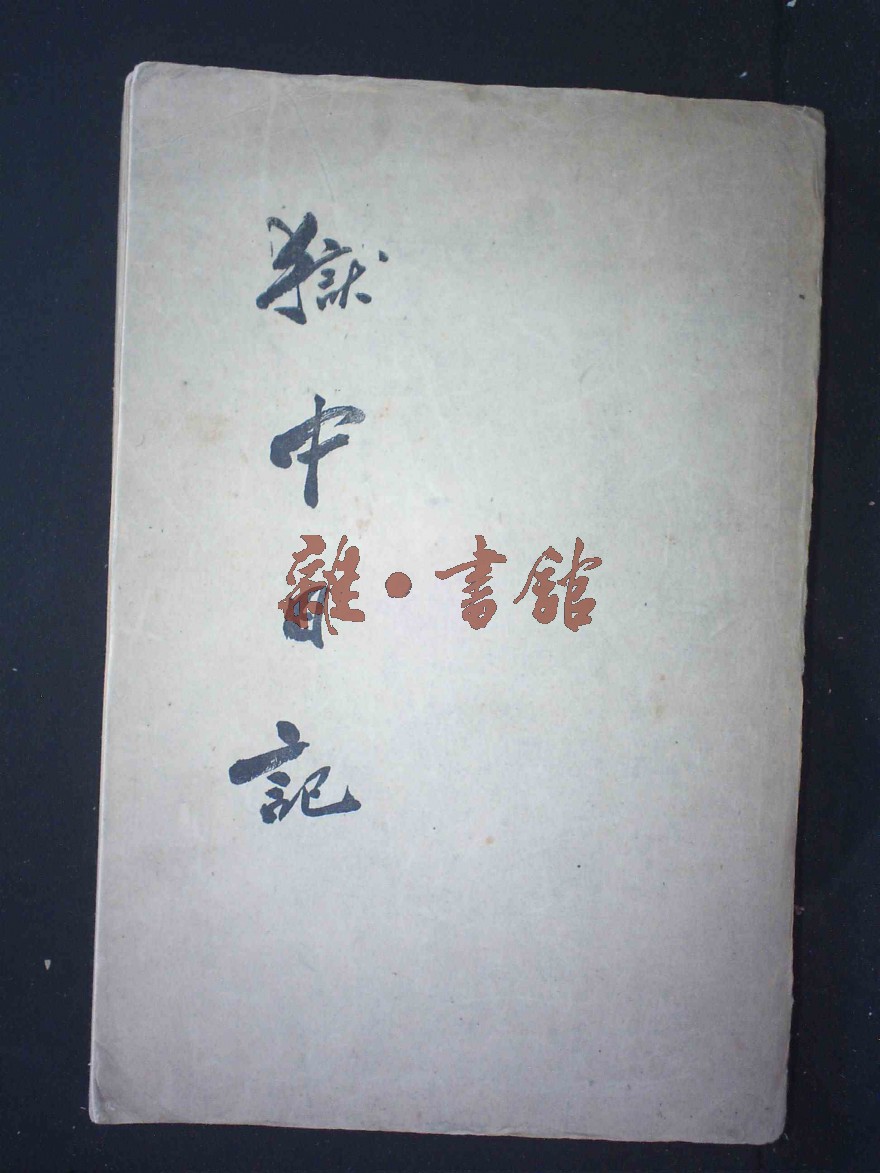 獄中日記
雜·書館